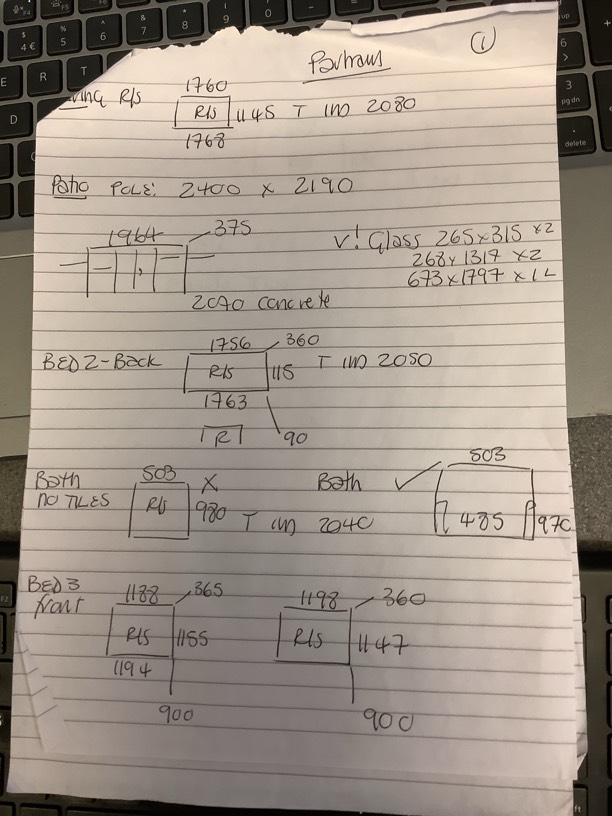 ①
1760
R/S R/S 1145 T IM 2080
1768
Patio POLE: 2400 x 2190
1964 375
V! Glass 265x315 x2
268x1317 x2
673x1797 x1 L
2090 concrete
1756 360
BED 2-Back R/S 115 T IM 2050
1763
R 90
503
Bath X
NO TILES R/S 980 T IM 2040
Bath ✓ 503
485 970
BED 3
front
1188 365
R/S 1155
1194
900
1198 360
R/S 1147
900